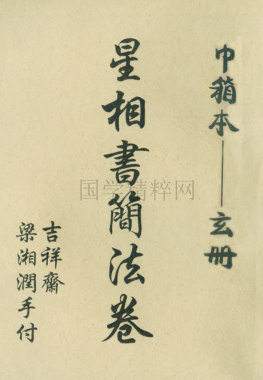 巾箱本——玄册
星相書簡法卷
吉祥齋
梁湘潤手付
国学精粹网